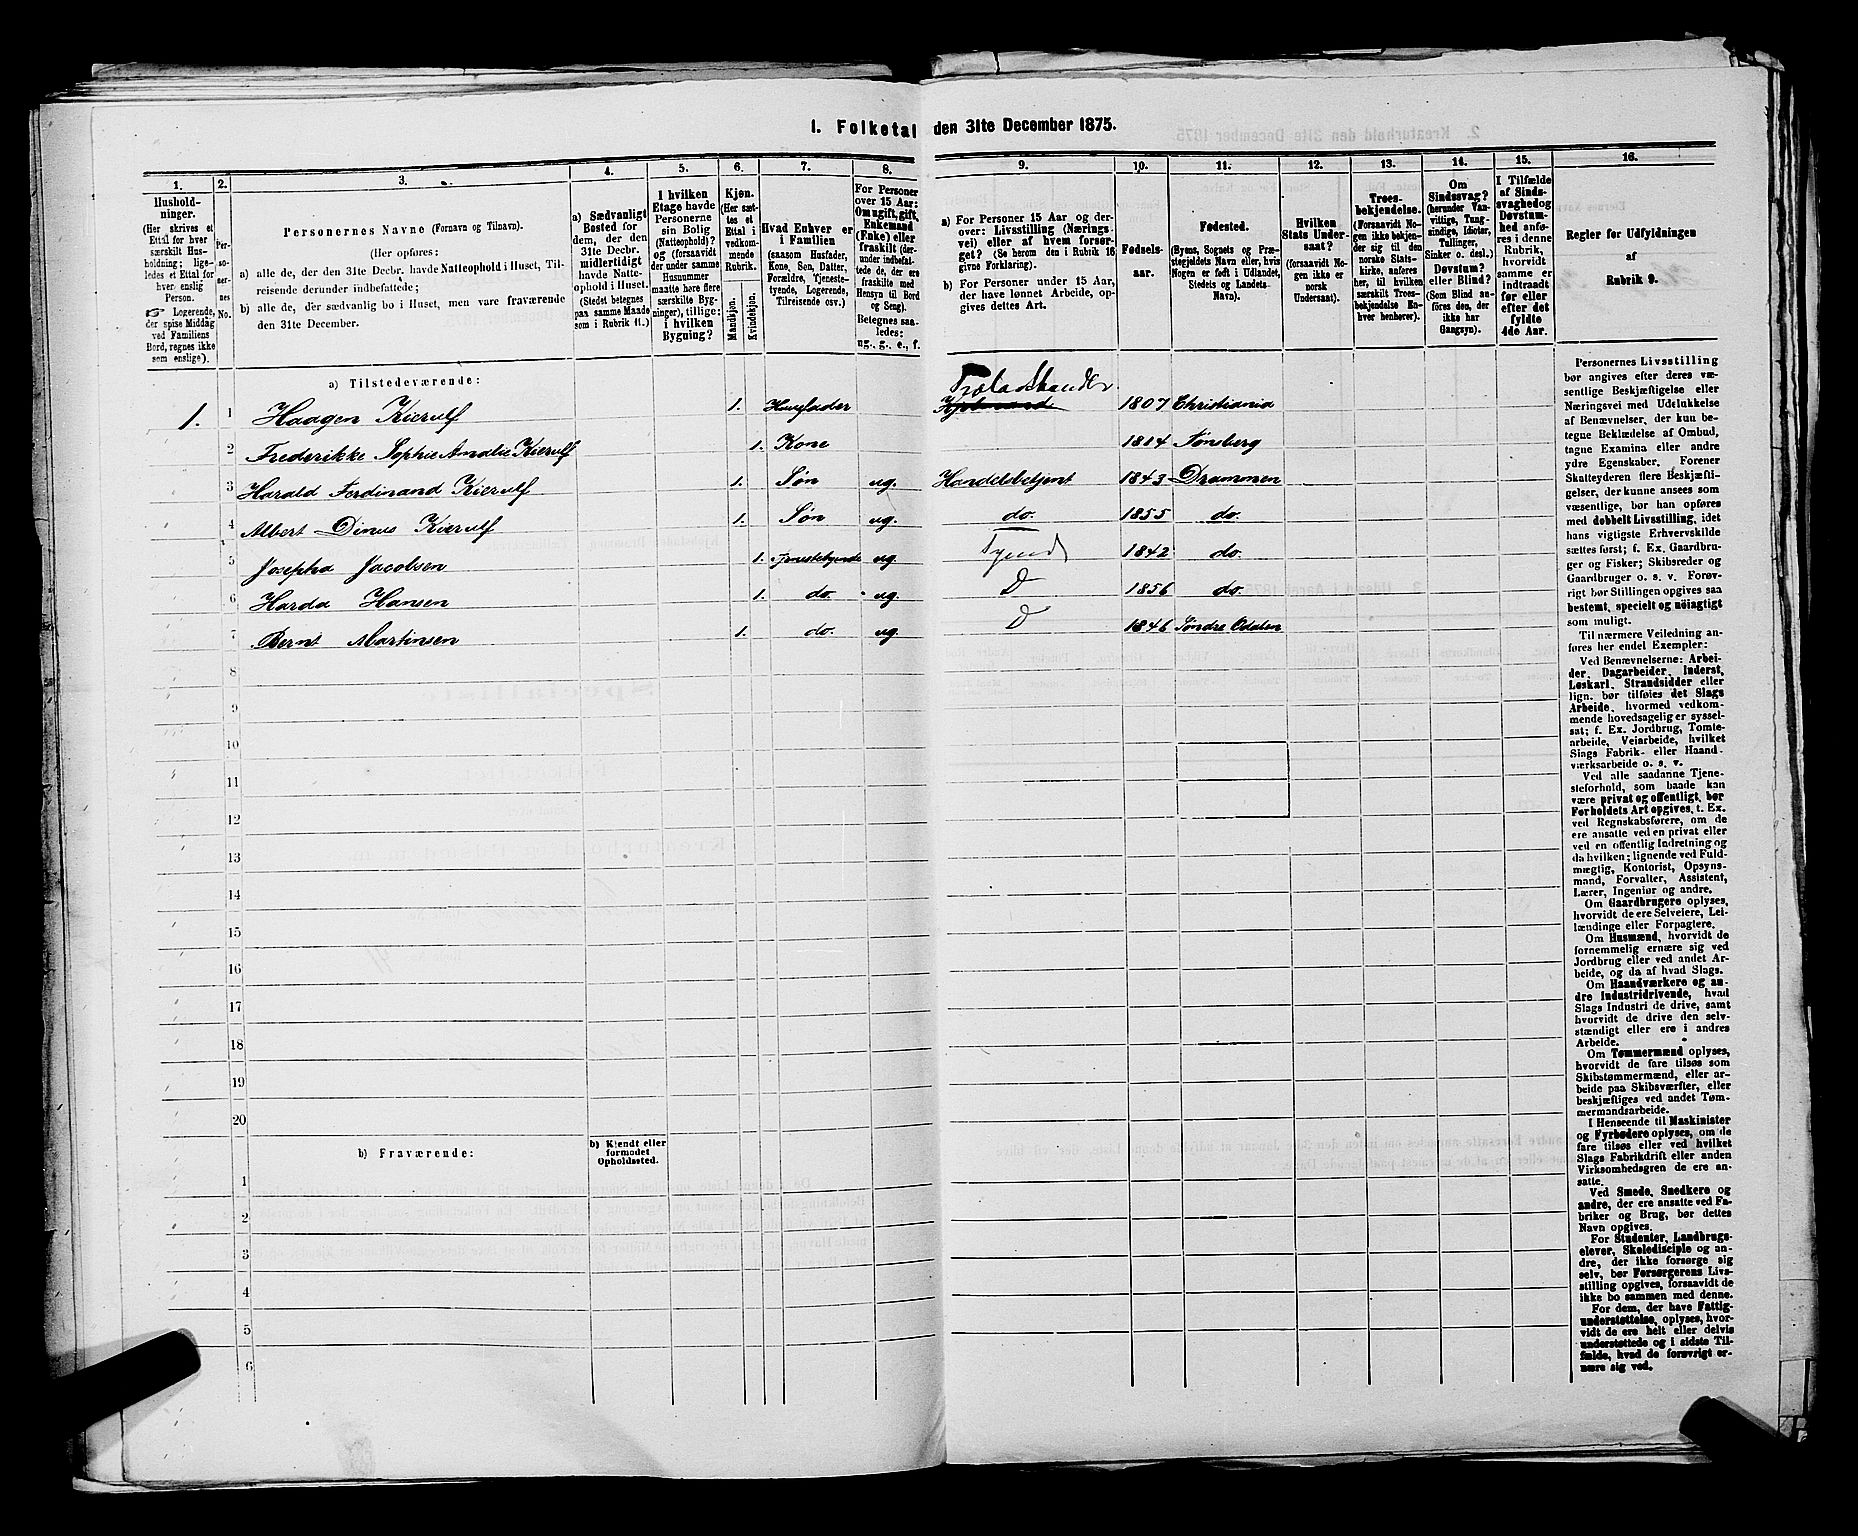 1. Folketal den 31te December 1875.
1.
2.
3.
4.
5.
6.
7.
8.
9.
10.
11.
12.
13.
14.
15.
16.
Hushold-
ninger.
(Her skrives et
Ettal for hver
særskilt Hus-
holdning; lige-
ledes et Ettal for
hver enslig
Person.
☞ Logerende,
der spise Middag
ved Familiens
Bord, regnes ikke
som enslige).
Per-
so-
ner-
nes
No.
Personernes Navne (Fornavn og Tilnavn).
(Her opføres:
a) alle de, der den 31te Decbr. havde Natteophold i Huset, Til-
reisende derunder indbefattede;
b) alle de, der sædvanlig bo i Huset, men vare fraværende
den 31te December.
a) Sædvanligt
Bosted for
dem, der den
31te Decbr.
midlertidigt
havde Natte-
ophold i Huset.
(Stedet betegnes
paa samme Maade
som i Rubrik 11.)
I hvilken
Etage havde
Personerne
sin Bolig
(Natteophold)?
og (forsaavidt
der under samme
Husnummer
maatte høre flere
særskilte Byg-
ninger), tillige:
i hvilken
Bygning?
Kjøn.
(Her sæt-
tes et
Ettal i
vedkom-
mende
Rubrik.
Mandkjøn.
Kvindekjøn.
Hvad Enhver er
i Familien
(saasom Husfader,
Kone, Søn, Datter,
Forældre, Tjeneste-
tyende, Logerende,
Tilreisende osv.)
For Personer
over 15 Aar:
Om ugift, gift,
Enkemand
(Enke) eller
fraskilt (der-
under indbefat-
tede de, der ere
fraskilte med
Hensyn til Bord
og Seng).
Betegnes saa-
ledes:
ug., g., e., f.
a) For Personer 15 Aar og der-
over: Livsstilling (Nærings-
vei) eller af hvem forsør-
get? (Se herom den i Rubrik 16
givne Forklaring).
b) For Personer under 15 Aar,
der have lønnet Arbeide, op-
gives dettes Art.
Fødsels-
aar.
Fødested.
(Byens, Sognets og Præ-
stegjeldets Navn eller, hvis
Nogen er født i Udlandet,
Stedets og Landets
Navn).
Hvilken
Stats Under-
saat?
(forsaavidt No-
gen ikke er
norsk
Undersaat).
Troes-
bekjendelse.
(Forsaavidt No-
gen ikke bekjen-
der sig til den
norske Stats-
kirke, anføres
her, til hvilken
særskilt Troes-
bekjendelse En-
hver henhører).
Om
Sindssvag?
(herunder Van-
vittige, Tung-
sindige, Idioter,
Tullinger,
Sinker o. desl.)
Døvstum?
eller Blind?
(Som Blind an-
føres den, der
ikke har
Gangsyn).
I Tilfælde
af Sinds-
svaghed og
Døvstum-
hed anfø-
res i denne
Rubrik,
hvorvidt
samme er
indtraadt
før eller
efter det
fyldte
4de Aar.
Regler for Udfyldningen
af
Rubrik 9.
a) Tilstedeværende:
Trælasthandler.
1. 1 Haagen Kierulf 1. Huusfader 1807 Christiania
2 Frederikke Sophie Amalie Kierulf 1. Kone 1814 Tønsberg
3 Harald Ferdinand Kierulf 1. Søn ug. Handelsbetjent 1843 Drammen
4 Albert Dinus Kierulf 1. Søn ug. do. 1855 do.
5 Josepha Jacobsen 1. Tjenestetyende ug. Tyende 1842 do.
6 Harda Hansen 1. do. ug. D 1856 do.
7 Bernt Martinsen 1. do. ug. D 1846 Søndre Odalen
8
9
10
11
12
13
14
15
16
17
18
19
20
b) Fraværende:
b) Kjendt eller
formodet
Opholdssted.
1
2
3
4
5
6
Personernes Livsstilling
bør angives efter deres væ-
sentlige Beskjæftigelse eller
Næringsvei med Udelukkelse
af Benævnelser, der kun be-
tegne Beklædelse af Ombud,
tagne Examina eller andre
ydre Egenskaber. Forener
Skatteyderen flere Beskjæfti-
gelser, der kunne ansees som
væsentlige, bør han opføres
med dobbelt Livsstilling, idet
hans vigtigste Erhvervskilde
sættes først; f. Ex. Gaardbru-
ger og Fisker; Skibsreder og
Gaardbruger o. s. v. Forøv-
rigt bør Stillingen opgives saa
bestemt, specielt og nøiagtigt
som muligt.
Til nærmere Veiledning an-
føres her endel Exempler:
Ved Benævnelserne: Arbei-
der, Dagarbeider, Inderst,
Løskarl, Strandsidder eller
lign. bør tilføies det Slags
Arbeide, hvormed vedkom-
mende hovedsagelig er syssel-
sat; f. Ex. Jordbrug, Tomte-
arbeide, Veiarbeide, hvilket
Slags Fabrik- eller Haand-
værksarbeide o. s. v.
Ved alle saadanne Tjene-
steforhold, som baade kan
være privat og offentligt, bør
Forholdets Art opgives, t. Ex.
ved Regnskabsførere, om de
ere ansatte ved en privat eller
ved en offentlig Indretning og
da hvilken; lignende ved Fuld-
mægtig, Kontorist, Opsyns-
mand, Forvalter, Assistent,
Lærer, Ingeniør og andre.
Om Gaardbrugere oplyses,
hvorvidt de ere Selveiere, Lei-
lændinge eller Forpagtere.
Om Husmænd, hvorvidt de
fornemmelig ernære sig ved
Jordbrug eller ved andet Ar-
beide, og da af hvad Slags.
Om Haandværkere og an-
dre Industridrivende, hvad
Slags Industri de drive, samt
hvorvidt de drive den selv-
stændigt eller ere i andres
Arbeide.
Om Tømmermænd oplyses,
hvorvidt de fare tilsøs som
Skibstømmermænd, eller ar-
beide paa Skibsværfter, eller
beskjæftiges ved andet Tøm-
mermandsarbeide.
I Henseende til Maskinister
og Fyrbødere oplyses, om de
fare tilsøs eller ved hvilket
Slags Fabrikdrift eller anden
Virksomhedsgren de ere an-
satte.
Ved Smede, Snedkere og
andre, der ere ansatte ved Fa-
briker og Brug, bør dettes
Navn opgives.
For Studenter, Landbrugs-
elever, Skoledisciple og an-
dre, der ikke forsørge sig
selv, bør Forsørgerens Livs-
stilling opgives, forsaavidt de
ikke bo sammen med denne.
For dem, der have Fattig-
understøttelse, oplyses, hvor-
vidt de ere helt eller delvis
understøttede og i sidste Til-
fælde, hvad de forøvrigt er-
nære sig ved.